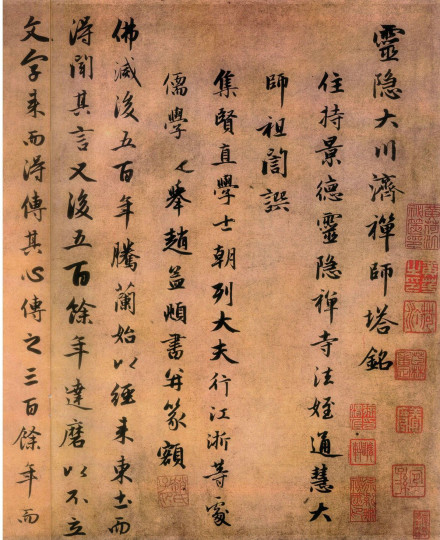 靈隐大川濟禪師塔銘
住持景德靈隐禪寺法姪通慧大
師祖誾譔
集賢直學士朝列大夫行江浙等處
儒學舉趙孟頫書并篆額
佛滅後五百年騰蘭始以經來東土而
得聞其言又後五百餘年達磨以不立
文字来而得傳其心傳之三百餘年而